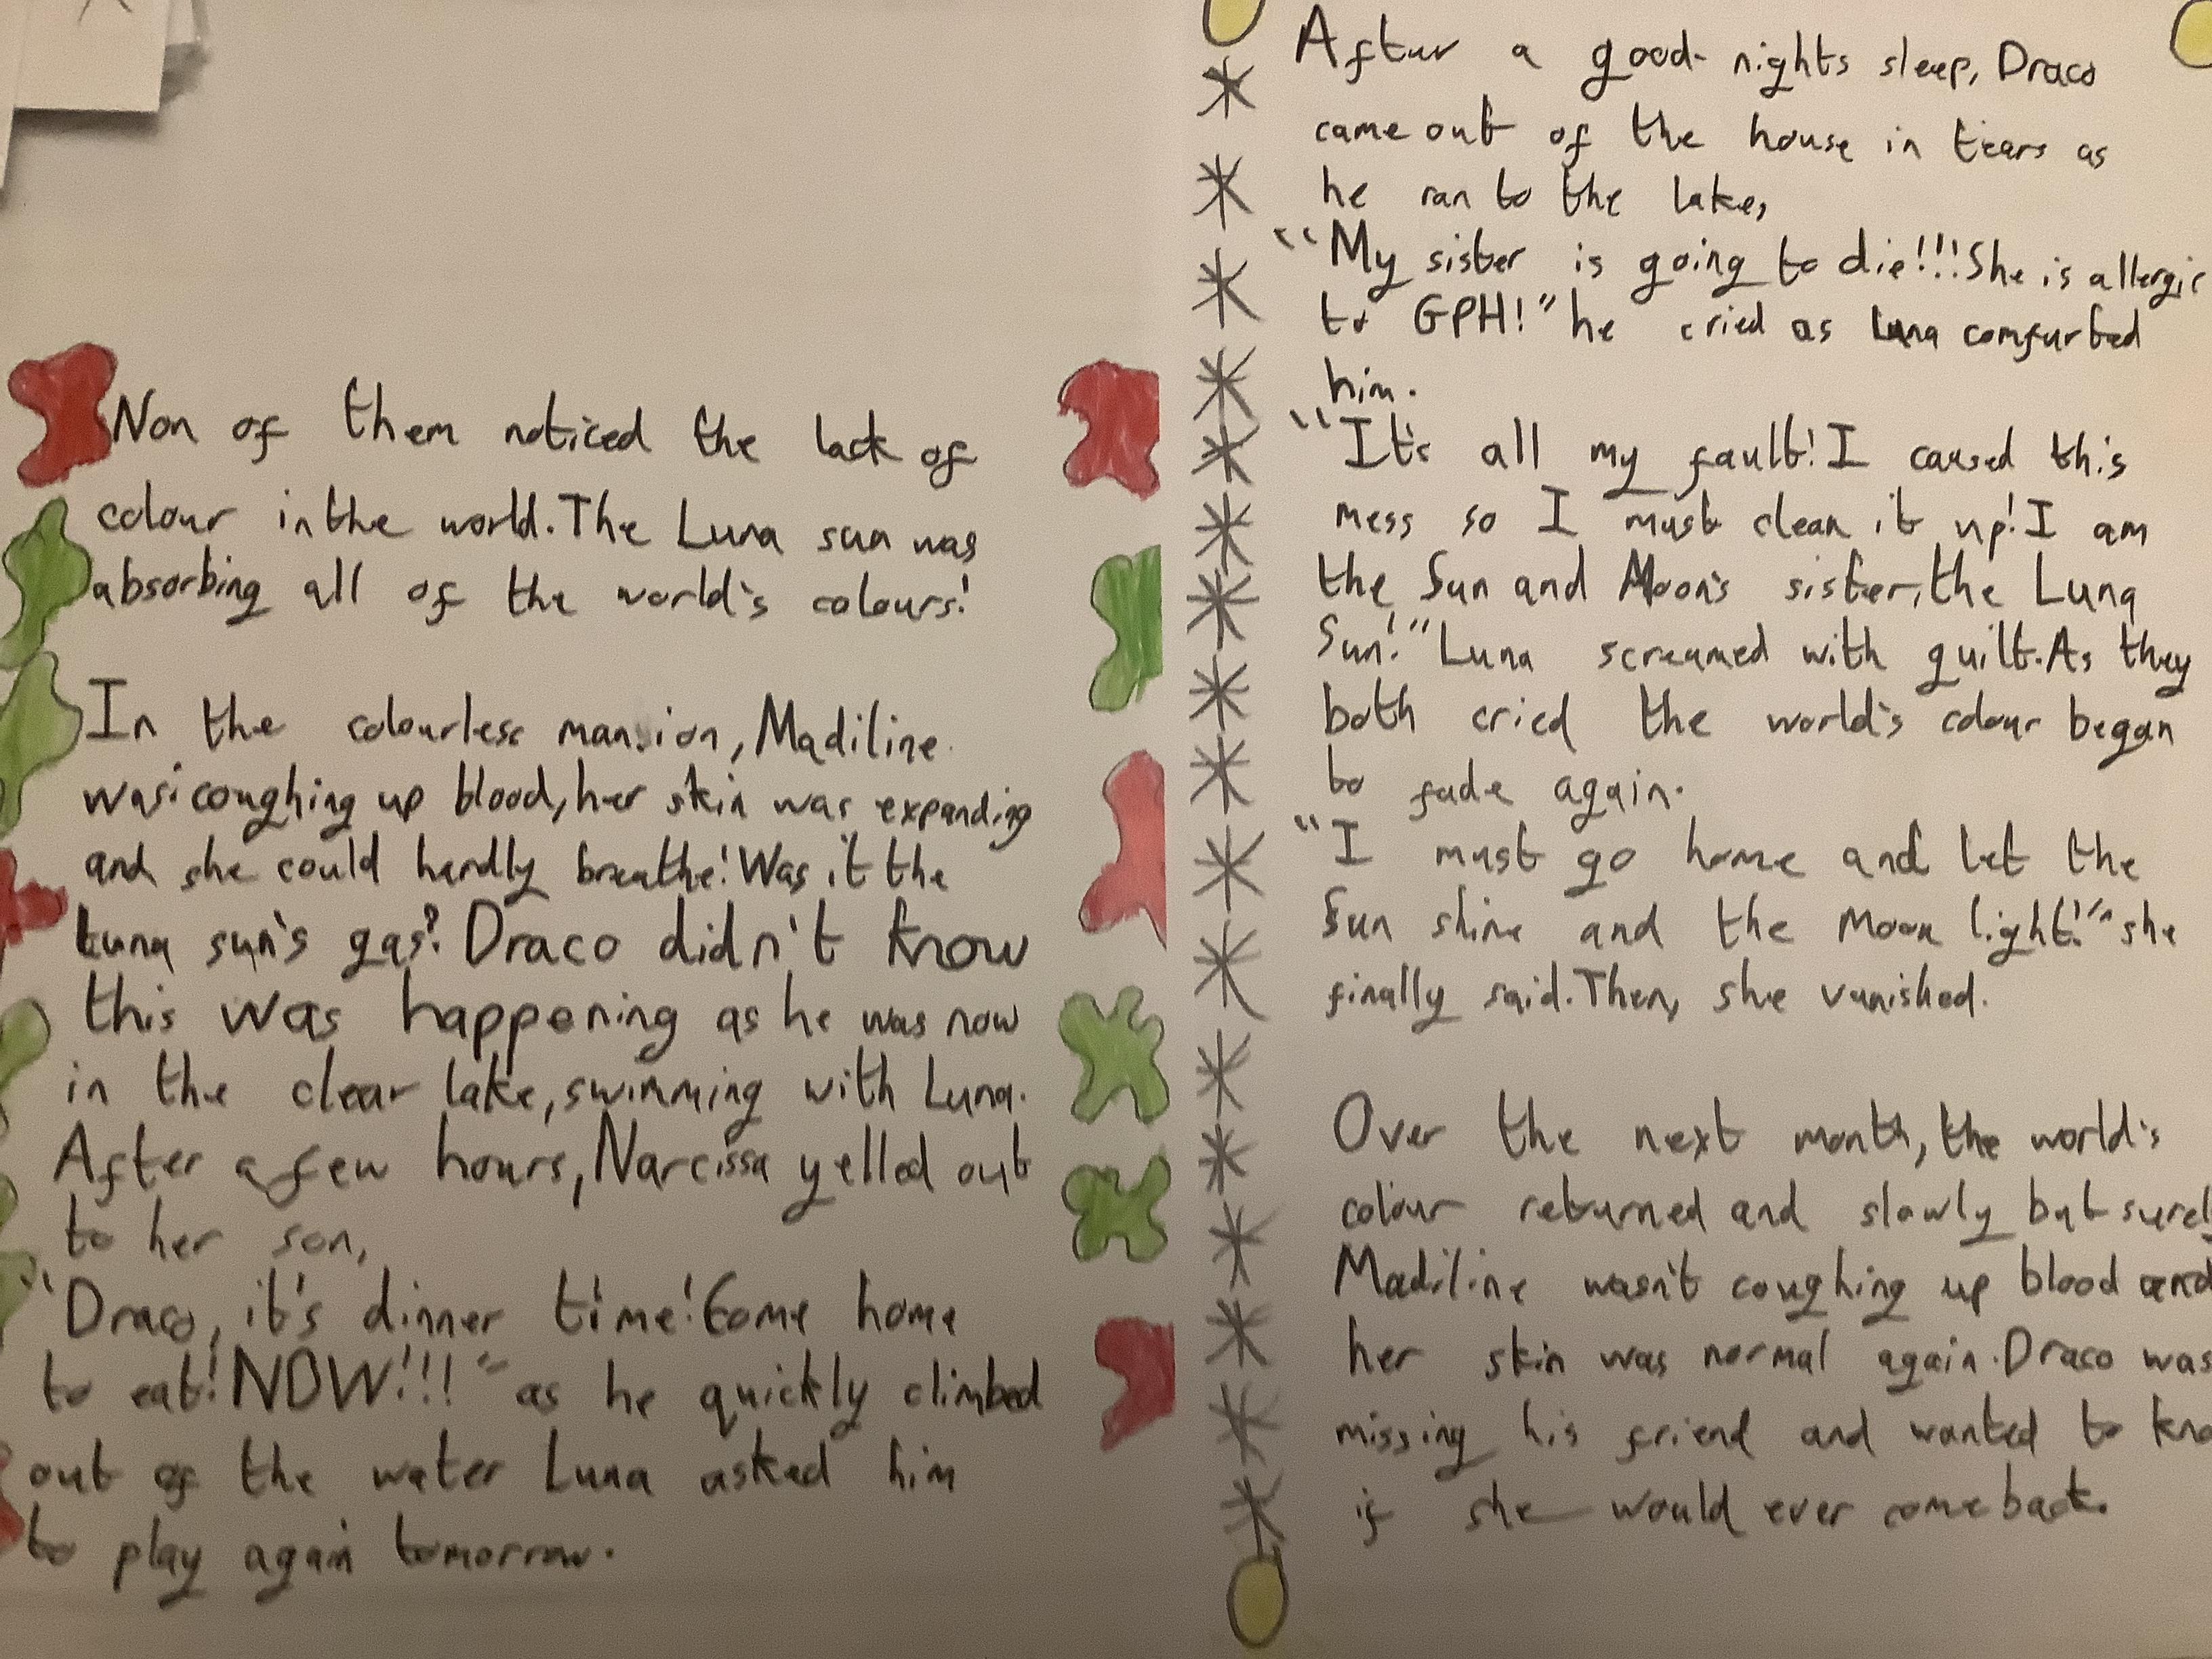 Non of them noticed the lack of
colour in the world. The Luna sun was
absorbing all of the world's colours!
In the colourless mansion, Madiline
was coughing up blood, her skin was expanding
and she could hardly breathe! Was it the
Luna sun's gas? Draco didn't know
this was happening as he was now
in the clear lake, swimming with Luna.
After a few hours, Narcissa yelled out
to her son,
"Draco, it's dinner time! Come home
to eat! NOW!!!" as he quickly climbed
out of the water Luna asked him
to play again tomorrow.
After a good nights sleep, Draco
came out of the house in tears as
he ran to the lake,
"My sister is going to die!!! She is allergic
to GPH!" he cried as Luna comfurted
him.
"It's all my fault! I caused this
mess so I must clean it up! I am
the Sun and Moon's sister, the Luna
Sun!" Luna screamed with guilt. As they
both cried the world's colour began
to fade again.
"I must go home and let the
Sun shine and the Moon light!" she
finally said. Then, she vanished.
Over the next month, the world's
colour returned and slowly but surel
Madiline wasn't coughing up blood and
her skin was normal again. Draco was
missing his friend and wanted to kno
if she would ever come back.